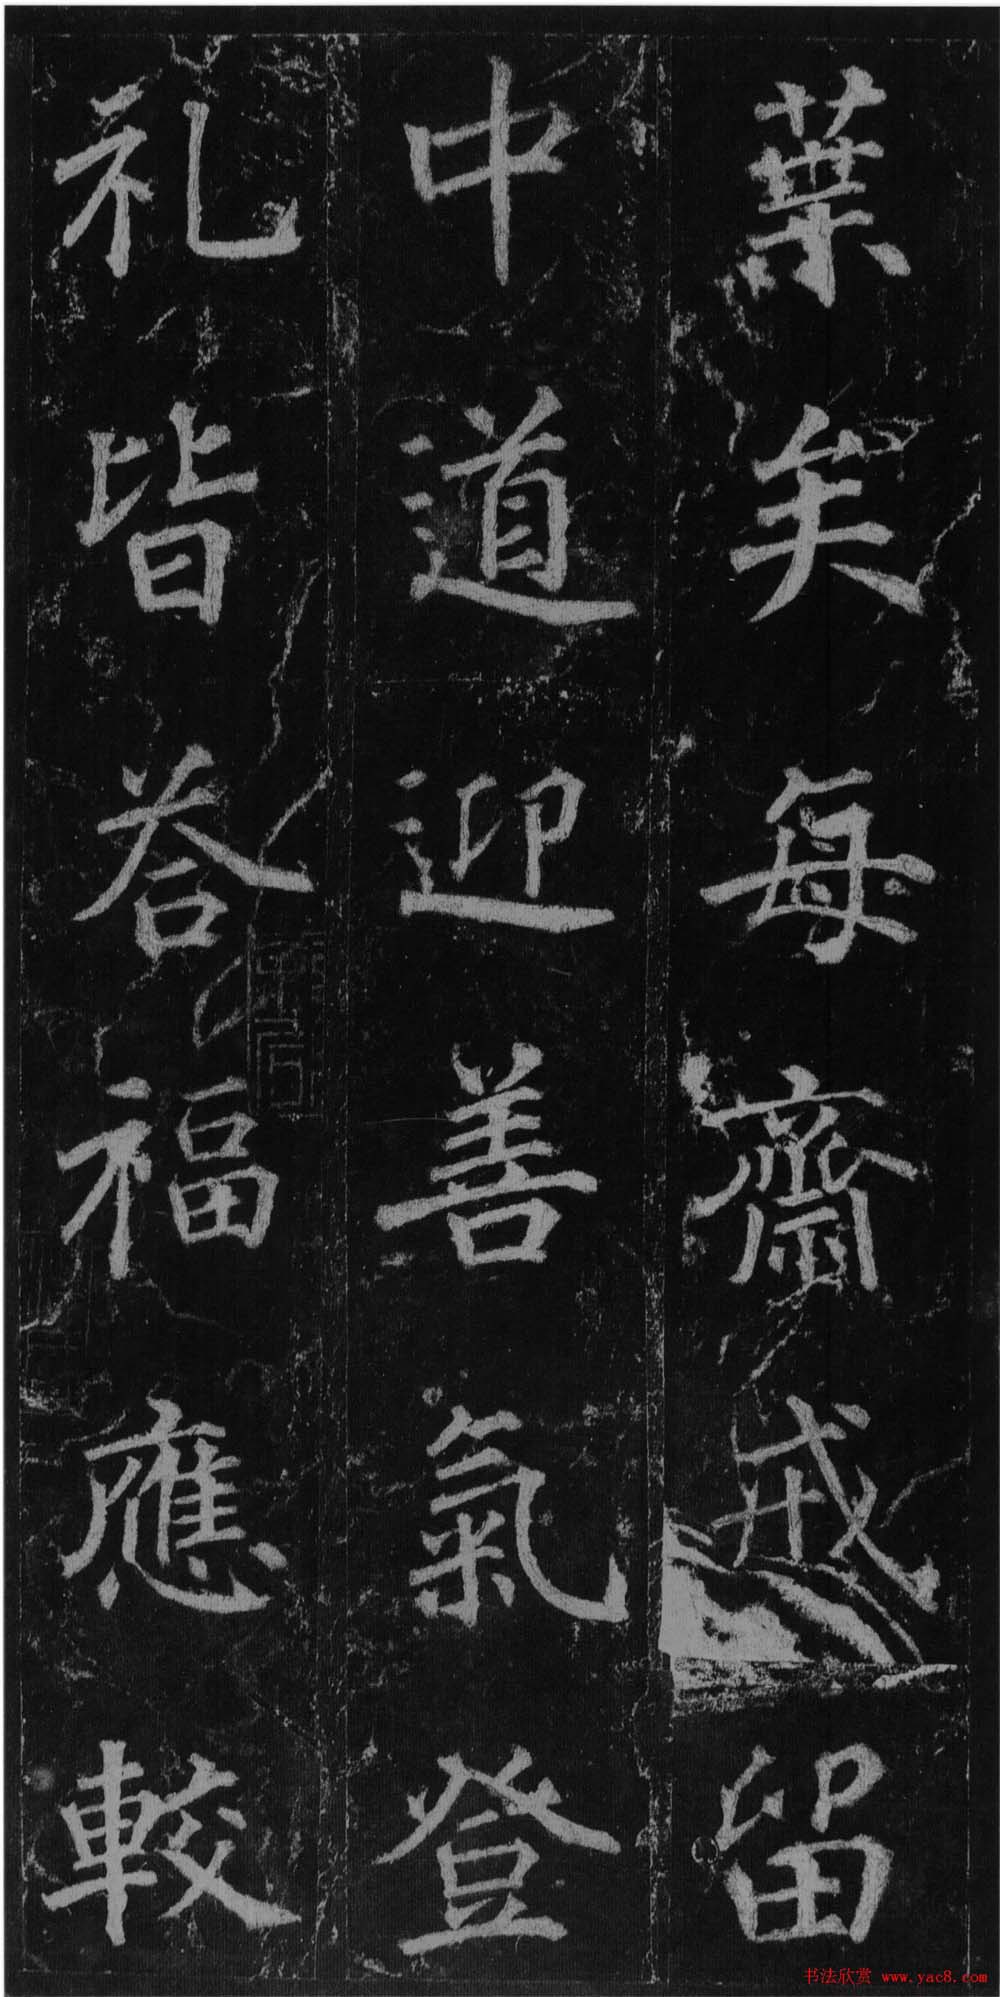 葉矣每齋戒留
中道迎善氣登
礼皆荅福應較
书法欣赏 www.yac8.com